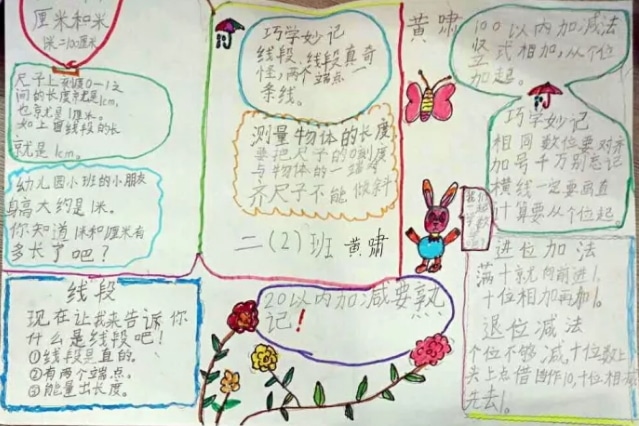 厘米和米
1米=100厘米
尺子上刻度0-1之
间的长度就是1cm,
也就是1厘米。
如上面线段的长
就是1cm.
幼儿园小班的小朋友
身高大约是1米。
你知道1米和1厘米有
多长了吧？
线段
现在让我来告诉你
什么是线段吧！
①线段是直的。
②有两个端点。
③能量出长度。
巧学妙记
线段、线段真奇
怪,两个端点一
条线。
测量物体的长度
要把尺子的0刻度
与物体的一端对
齐尺子不能做斜
二(2)班 黄啸
20以内加减要熟
记！
黄啸
100以内加减法
竖式相加,从个位
加起。
巧学妙记
相同数位要对齐
加号千万别忘记
横线一定要画直
计算要从个位起。
进位加法
满十就向前进
十位相加再加1。
退位减法
个位不够减,十位数上
头上点借1当作10,十位相减
先去1。